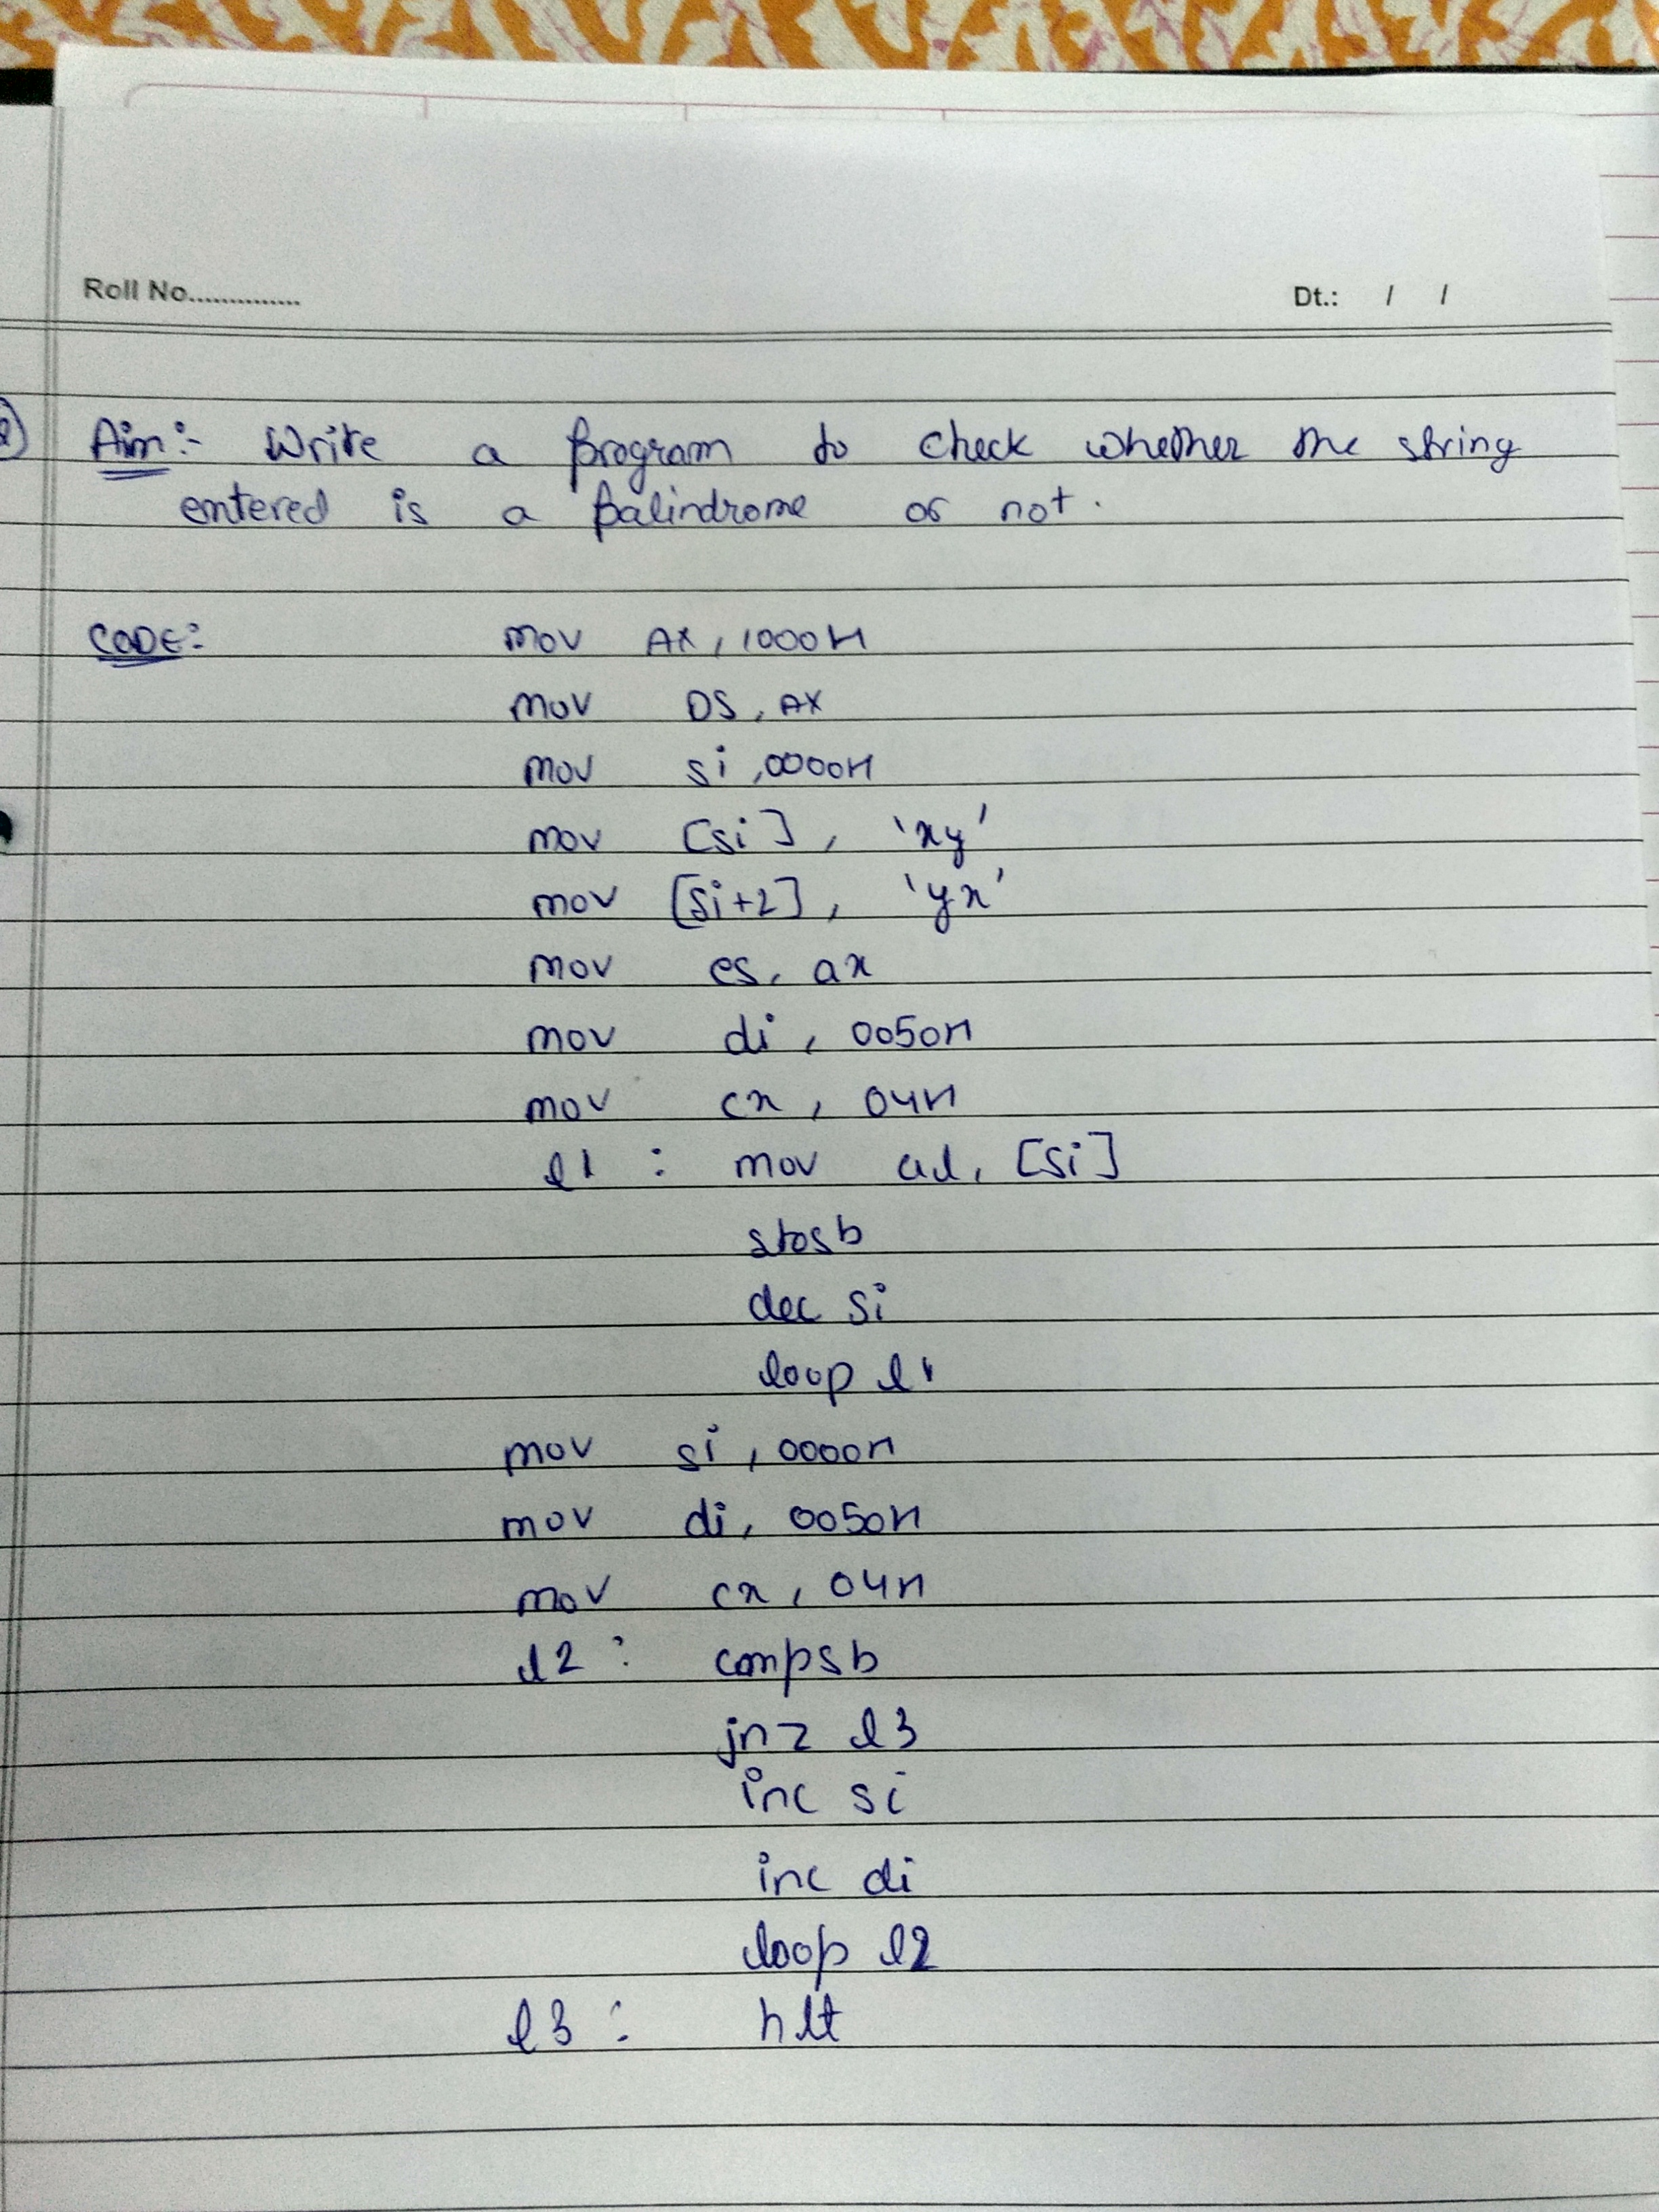 Roll No.............. Dt.: / /
Aim:- Write a program to check whether the string
entered is a palindrome or not.
CODE: mov AX, 1000H
mov DS, AX
mov si, 0000H
mov [si], 'xy'
mov [si+2], 'yx'
mov es, ax
mov di, 0050H
mov cx, 04H
l1 : mov al, [si]
stosb
dec si
loop l1
mov si, 0000H
mov di, 0050H
mov cx, 04H
l2 : compsb
jnz l3
inc si
inc di
loop l2
l3 : hlt